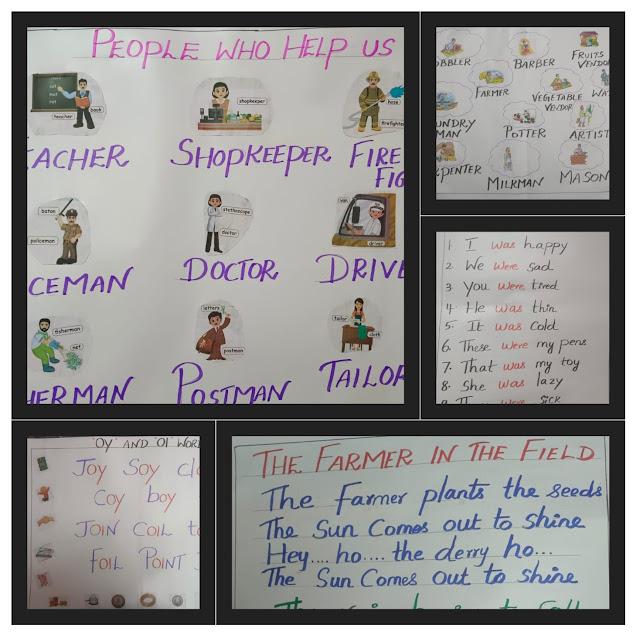 PEOPLE WHO HELP US
teacher book
shopkeeper
hose
firefighter
EACHER SHOPKEEPER FIRE
FIG
baton
policeman
stethoscope
doctor
van
driver
CEMAN DOCTOR DRIVE
fisherman
net
letters
postman
tailor
cloth
HERMAN POSTMAN TAILOR
OBBLER BARBER FRUITS
VENDO
FARMER VEGETABLE
VENDOR WA
UNDRY
MAN POTTER ARTIST
PENTER MILKMAN MASON
1. I was happy
2. We were sad
3. You were tired
4. He was thin
5. It was cold
6. These were my pens
7. That was my toy
8. She was lazy
were sick
"OY" AND "OI" WOR
JOY SOY clo
COY boy
JOIN COIL to
FOIL POINT
THE FARMER IN THE FIELD
The Farmer plants the seeds
The Sun Comes out to shine
Hey.... ho.... the derry ho...
The Sun Comes out to shine